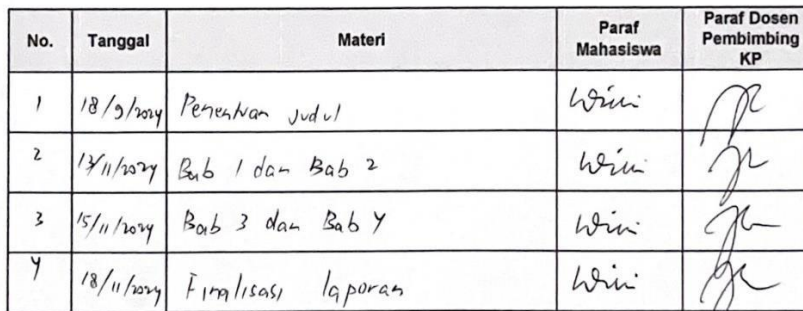 No. Tanggal Materi Paraf Mahasiswa Paraf Dosen Pembimbing KP
1 18/9/2024 Penentuan Judul Wiwi
2 13/11/2024 Bab 1 dan Bab 2 Wiwi
3 15/11/2024 Bab 3 dan Bab 4 Wiwi
4 18/11/2024 Finalisasi laporan Wiwi